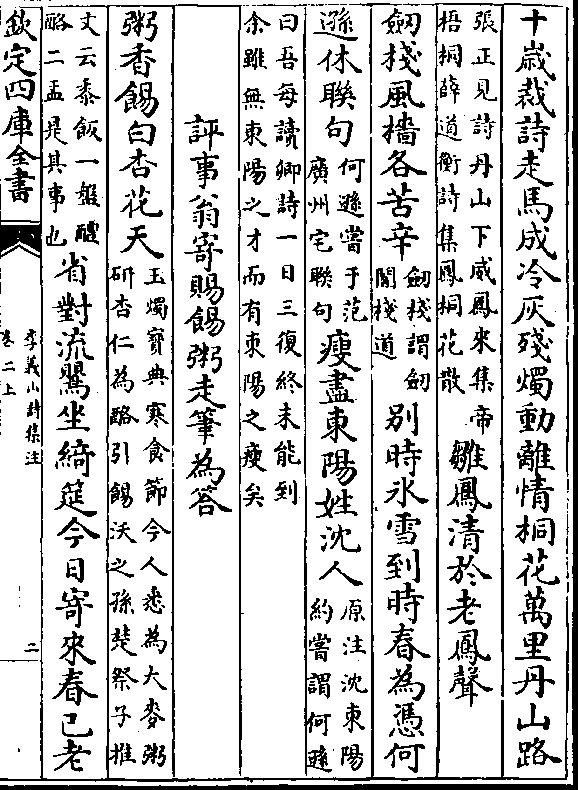 十歳裁詩走馬成冷灰殘燭動離情桐花萬里丹山路
張正見詩丹山下威鳳來集帝
梧桐薛道衡詩集鳳桐花散
雛鳳清於老鳳聲
劒棧風檣各苦辛
劒棧謂劒
閣棧道
别時氷雪到時春為憑何
遜休聯句
何遜嘗于范
廣州宅聯句
瘦盡東陽姓沈人
原注沈東陽
約嘗謂何遜
曰吾每讀卿詩一日三復終未能到
余雖無東陽之才而有東陽之瘦矣
評事翁寄賜餳粥走筆為答
粥香餳白杏花天
玉燭寳典寒食節今人悉為大麥粥
研杏仁為酪引餳沃之孫楚祭子推
文云黍飯一盤醴
酪二盂是其事也
省對流鶯坐綺筵今日寄來春已老
欽定四庫全書
李義山詩集注
卷二上
二